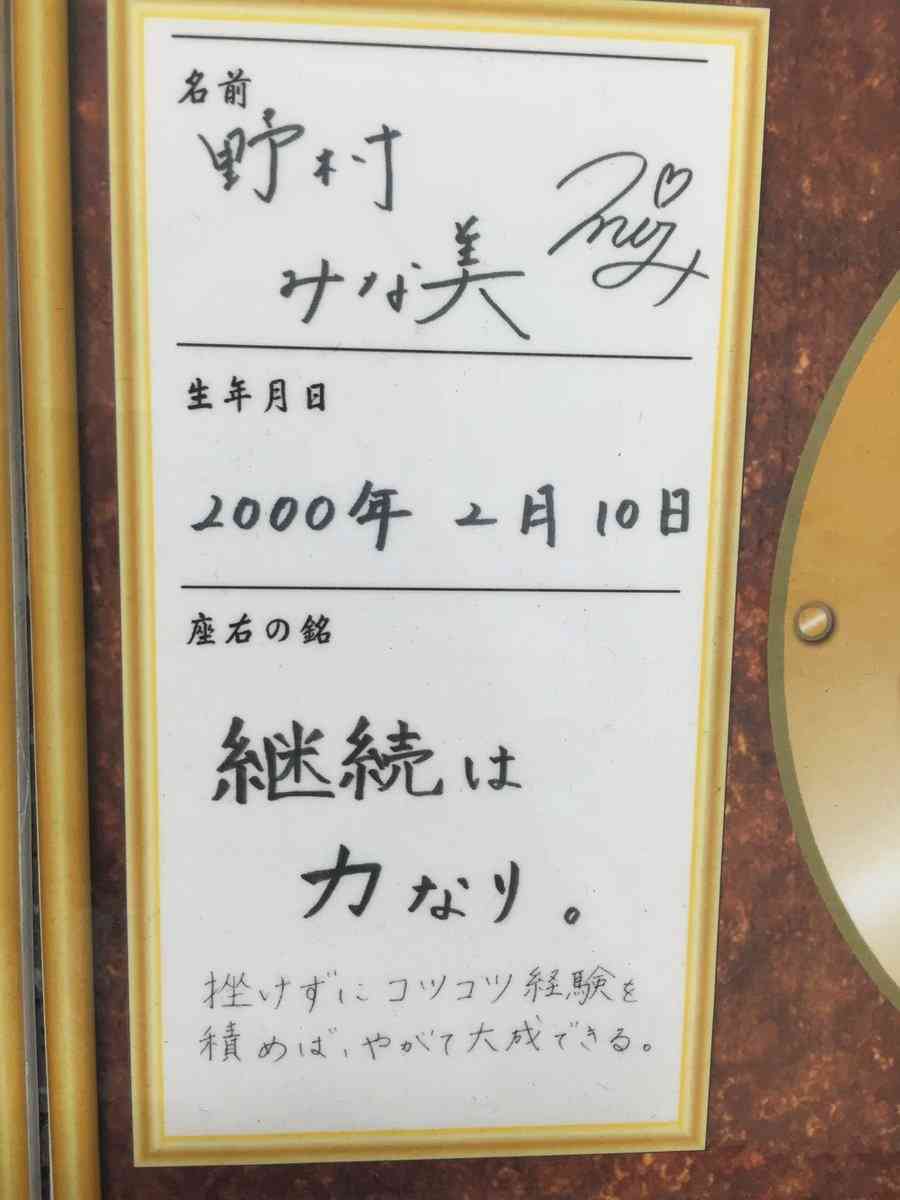 名前
野村
みな美
生年月日
2000年 2月 10日
座右の銘
継続は
力なり。
挫けずにコツコツ経験を
積めば、やがて大成できる。